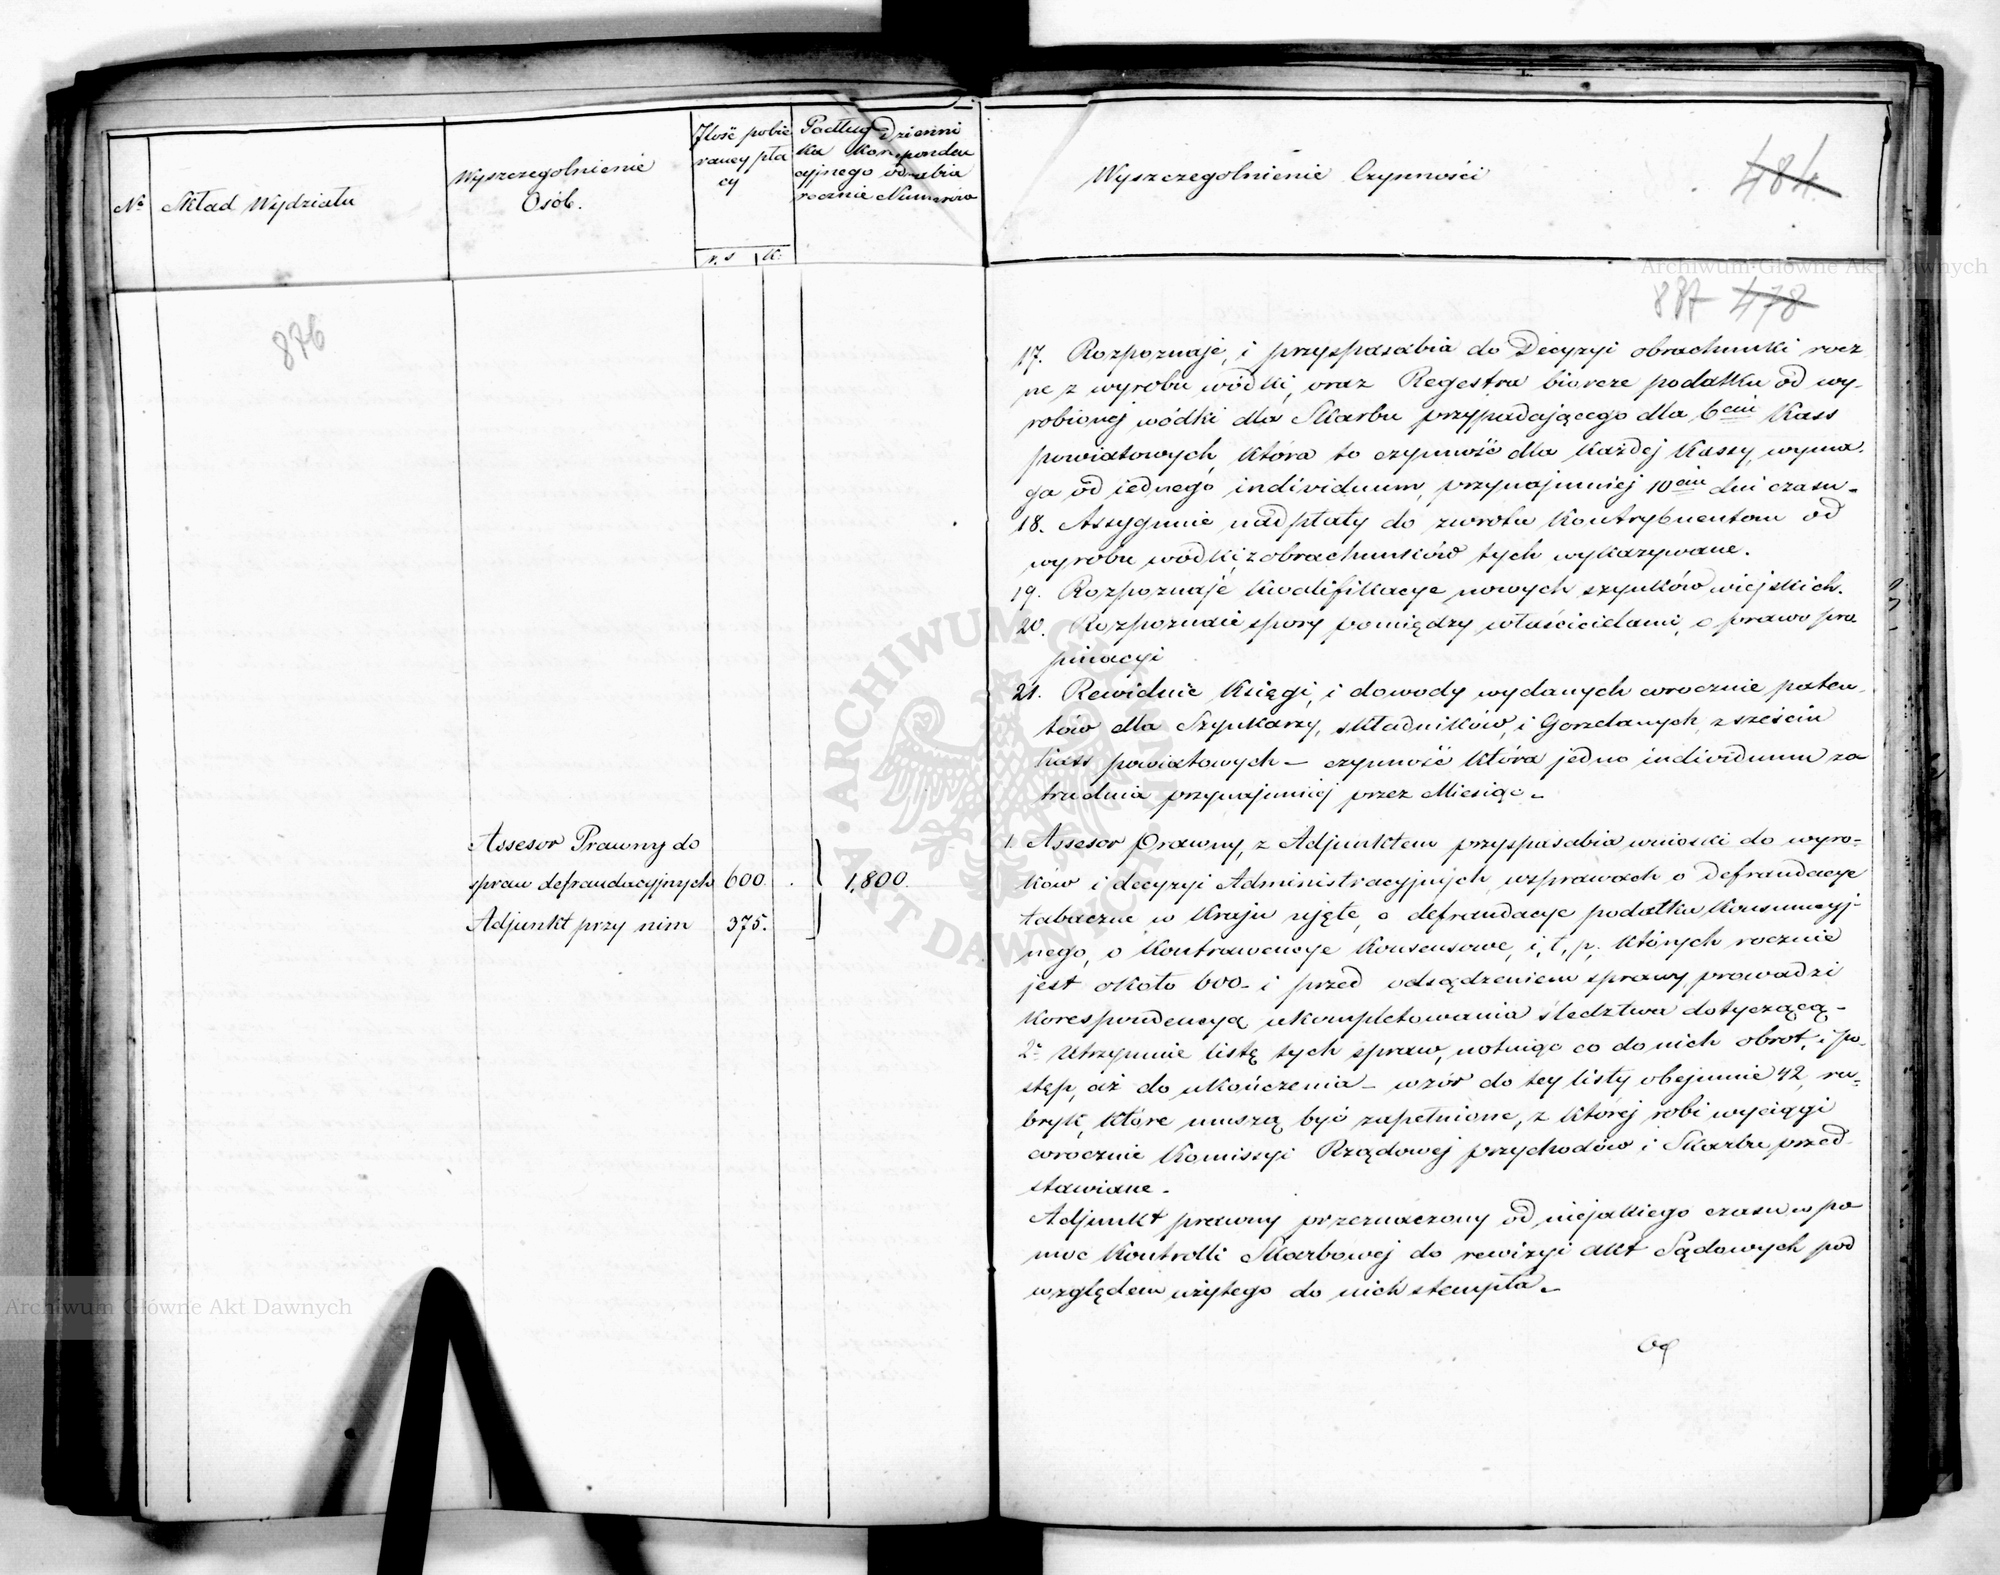 Nº
Skład Wydziału
Wyszczegolnienie
Osób.
Jlość pobie
raney pła
cy
r. s. k.
Podług Dzienni
ka Korrespondencyi
cyjnego odrabia
rocznie Numerów
Wyszczegolnienie Czynności
484.
876
887 478
17. Rozpoznaje, i przysposabia do Decyzyi obrachunki rocz
ne z wyrobu wódki, oraz Regestra biorcze podatku od wy-
robionej wódki dla Skarbu przypadającego dla 6ciu Kass
powiatowych, która to czynność dla każdej Kassy, wyma-
ga od iednego individuum, przynajmniej 10ciu dni czasu-
18. Assygnuie nadpłaty do zwrotu Kontrybuentom od
wyrobu wódki, z obrachunków tych wykazywane.
19. Rozpoznaje kwalifikacye nowych szynków wiejskich.
20. Rozpoznaie spory pomiędzy właścicielami, o prawo pro
pinacyi
21. Rewiduie Księgi, i dowody wydanych corocznie paten-
tów dla Szynkarzy, składników, i Gorzelanych, z sześciu
kass powiatowych – czynność która jedno individuum za
trudnia przynajmniej przez Miesiąc-
Assesor Prawny do
spraw defraudacyjnych 600.
Adjunkt przy nim 375.
1,800.
1. Assesor Prawny, z Adjunktem przysposabia wnioski do wyro-
ków i decyzyi Administracyjnych wsprawach o Defraudacye
tabaczne w Kraju ujęte, o defraudacye podatku Konsumcyj-
nego, o Kontrawencye Konsensowe, i, t, p. których rocznie
jest około 600 - i przed odsądzeniem sprawy, prowadzi
korespondencyą ukompletowania śledztwa dotyczącą-
2. Utrzymuie listę tych spraw, notuiąc co do nich obrot, i po-
stęp, aż do ukończenia - wzór do tey listy obejmuie 42, ru-
bryk, które muszą być zapełnione, z której robi wyciągi
corocznie Komissyi Rządowej przychodów i Skarbu przed-
stawiane.
Adjunkt prawny przeznaczony od niejakiego czasu w po
moc Kontrolli Skarbowej do rewizyi akt Sądowych pod
względem użytego do nich stempla-
Archiwum Główne Akt Dawnych
Archiwum Główne Akt Dawnych
ARCHIWUM GŁÓWNE AKT DAWNYCH